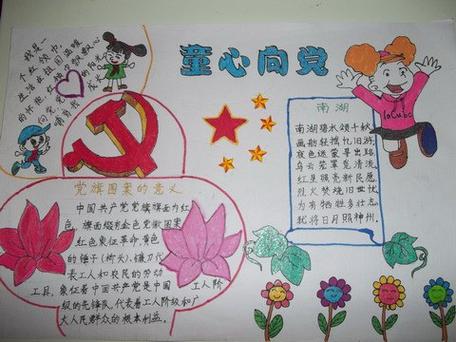 童心向党
我是一
个红领巾
生活在祖国温暖
的怀抱
向党
党旗图案的意义
中国共产党党旗旗面为红
色，旗面缀有金色党徽图案
红色象征革命，黄色
的锤子（斧头）、镰刀代
表工人和农民的劳动
工具，象征着中国共产党是中国工人阶
级的先锋队，代表着工人阶级和广
大人民群众的根本利益。
南湖
南湖碧水领千秋
画舫轻摇忆旧游
夜色迷蒙寻出路
乌云笼罩觅清流
红星旗亮新民愿
烈火焚烧旧世忧
为有牺牲多壮志
犹将日月照神州